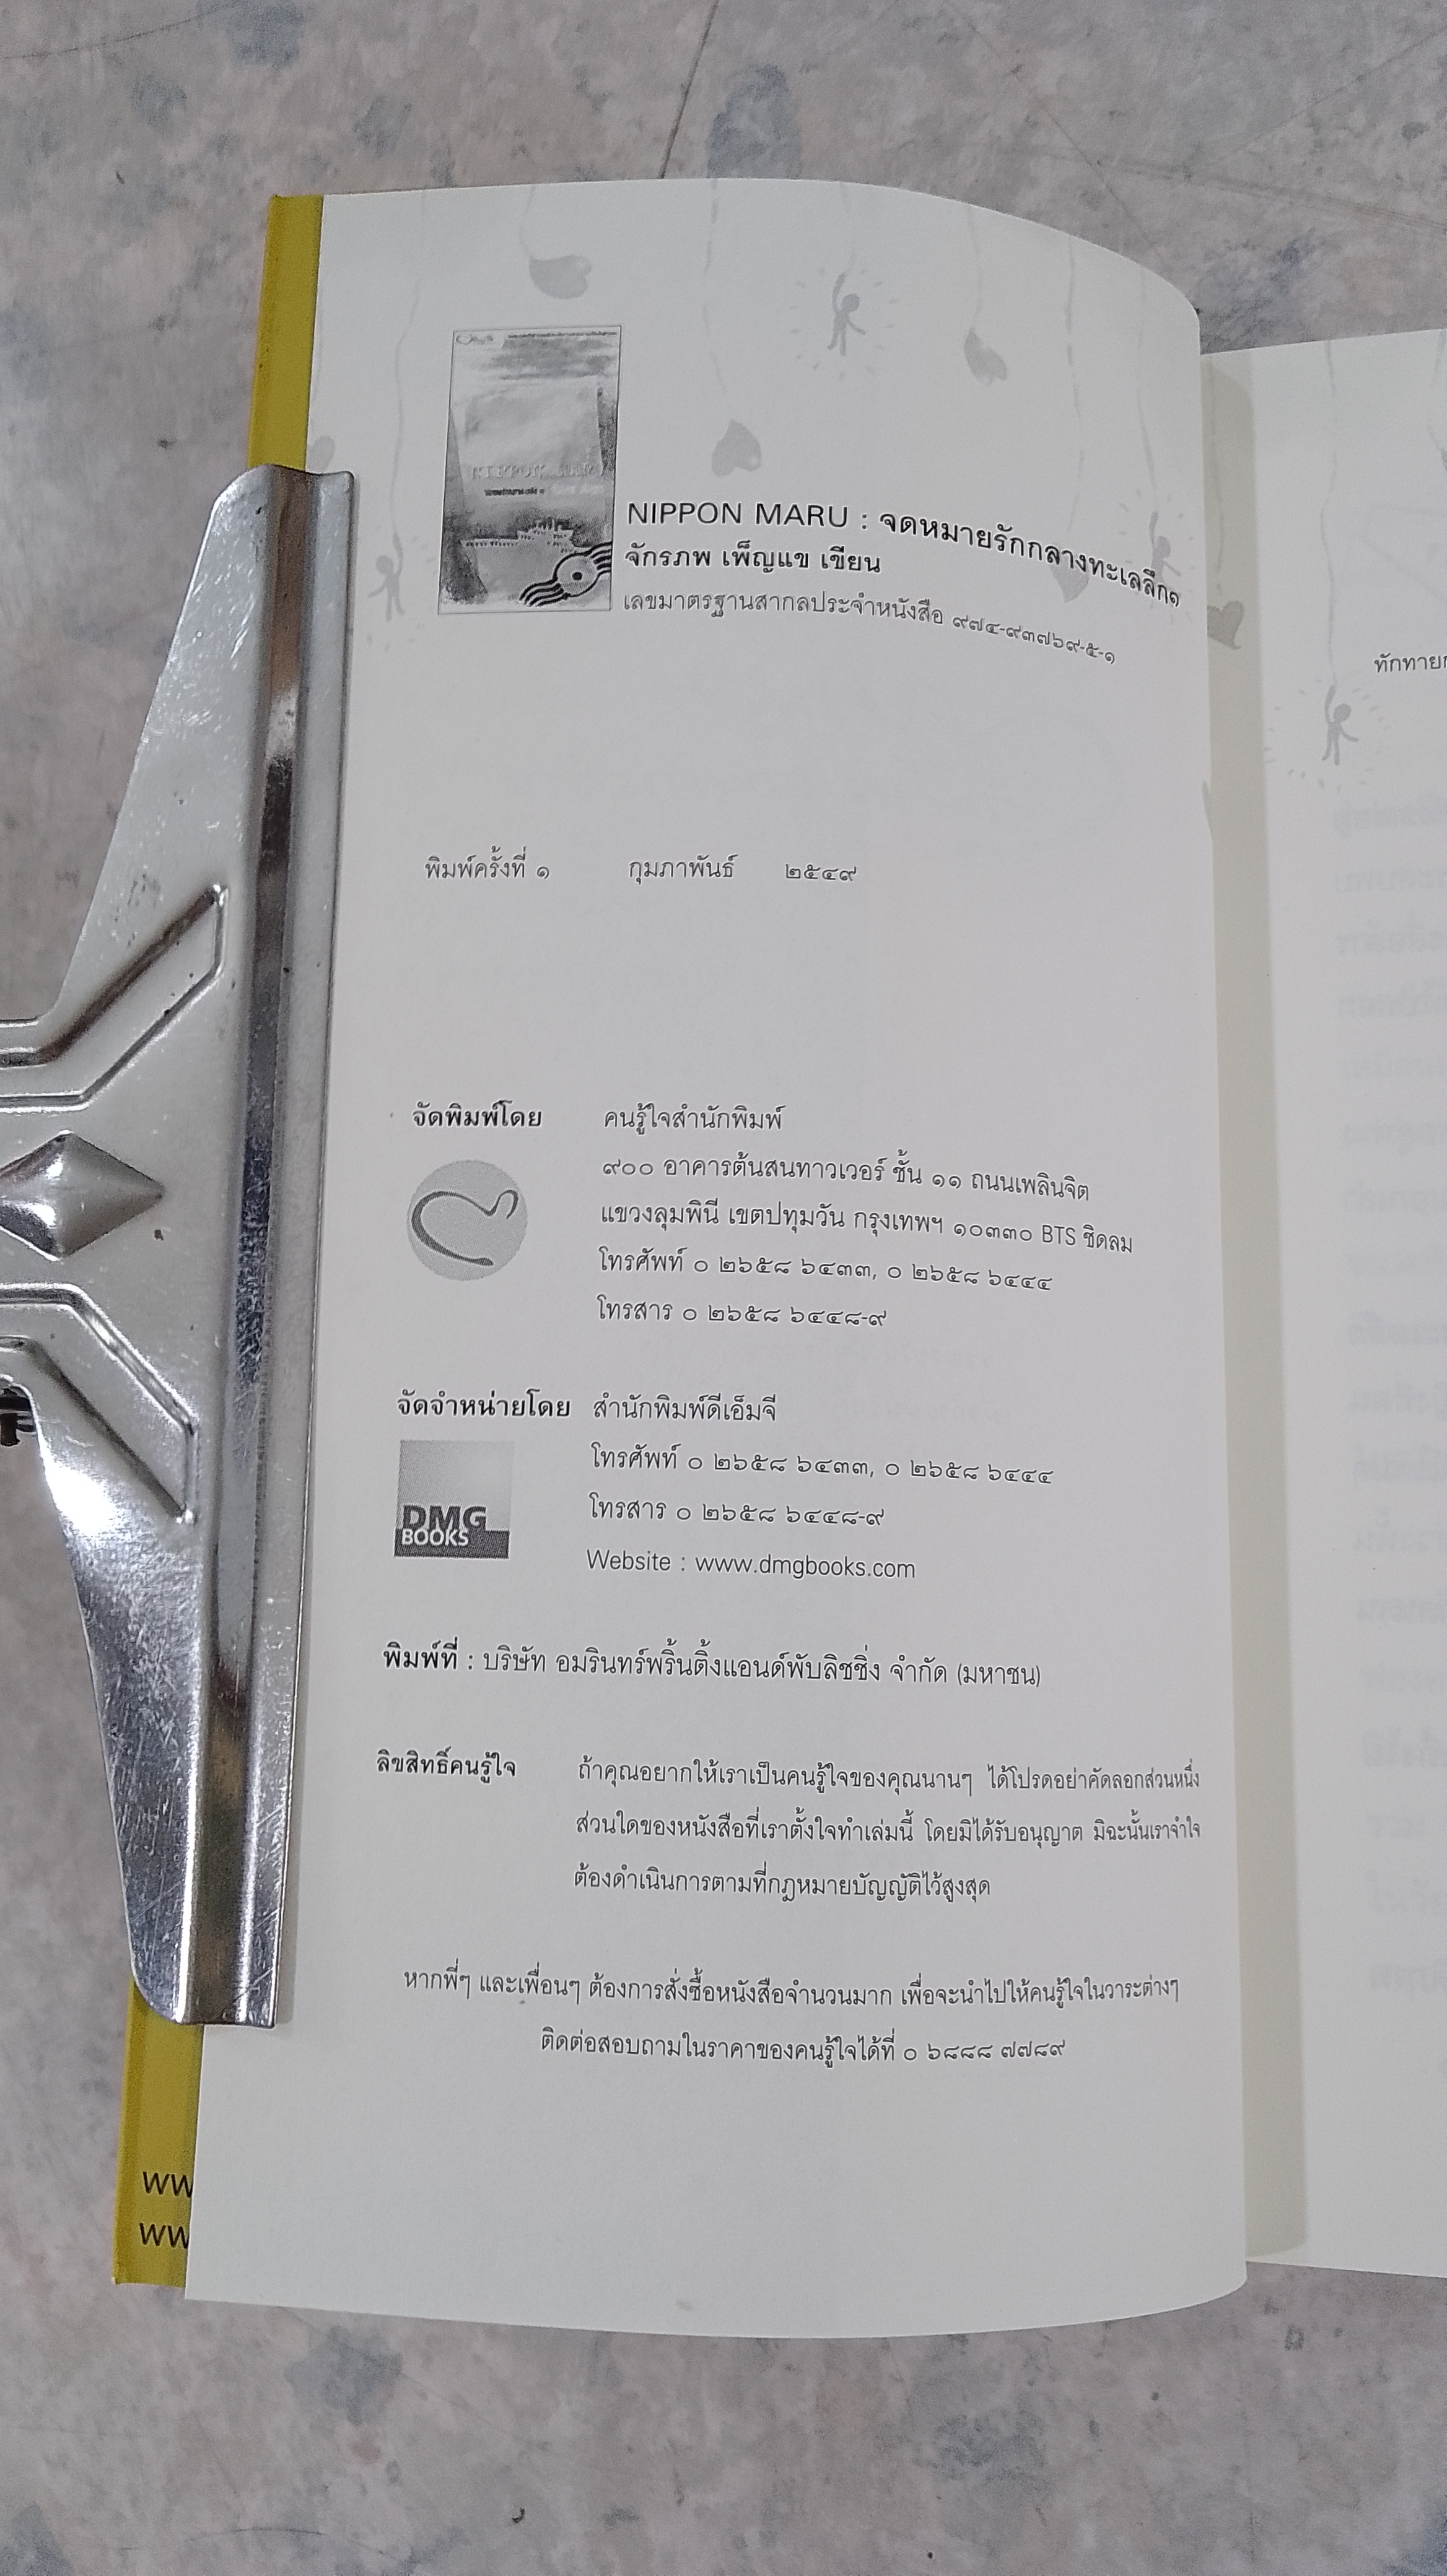 NIPPON MARU : จดหมายรักกลางทะเลลึก๑
จักรภพ เพ็ญแข เขียน
เลขมาตรฐานสากลประจำหนังสือ ๙๗๔-๙๓๗๖๙-๕-๑
ทักทาย
พิมพ์ครั้งที่ ๑ กุมภาพันธ์ ๒๕๔๙
จัดพิมพ์โดย คนรู้ใจสำนักพิมพ์
๙๐๐ อาคารต้นสนทาวเวอร์ ชั้น ๑๑ ถนนเพลินจิต
แขวงลุมพินี เขตปทุมวัน กรุงเทพฯ ๑๐๓๓๐ BTS ชิดลม
โทรศัพท์ ๐ ๒๖๕๘ ๖๔๓๓, ๐ ๒๖๕๘ ๖๔๔๔
โทรสาร ๐ ๒๖๕๘ ๖๔๔๘-๙
จัดจำหน่ายโดย สำนักพิมพ์ดีเอ็มจี
โทรศัพท์ ๐ ๒๖๕๘ ๖๔๓๓, ๐ ๒๖๕๘ ๖๔๔๔
โทรสาร ๐ ๒๖๕๘ ๖๔๔๘-๙
DMG
BOOKS
Website : www.dmgbooks.com
พิมพ์ที่ : บริษัท อมรินทร์พริ้นติ้งแอนด์พับลิชชิ่ง จำกัด (มหาชน)
ลิขสิทธิ์คนรู้ใจ ถ้าคุณอยากให้เราเป็นคนรู้ใจของคุณนานๆ ได้โปรดอย่าคัดลอกส่วนหนึ่ง
ส่วนใดของหนังสือที่เราตั้งใจทำเล่มนี้ โดยมิได้รับอนุญาต มิฉะนั้นเราจำใจ
ต้องดำเนินการตามที่กฎหมายบัญญัติไว้สูงสุด
หากพี่ๆ และเพื่อนๆ ต้องการสั่งซื้อหนังสือจำนวนมาก เพื่อจะนำไปให้คนรู้ใจในวาระต่างๆ
ติดต่อสอบถามในราคาของคนรู้ใจได้ที่ ๐ ๖๘๘๘ ๗๗๘๙
ww
ww